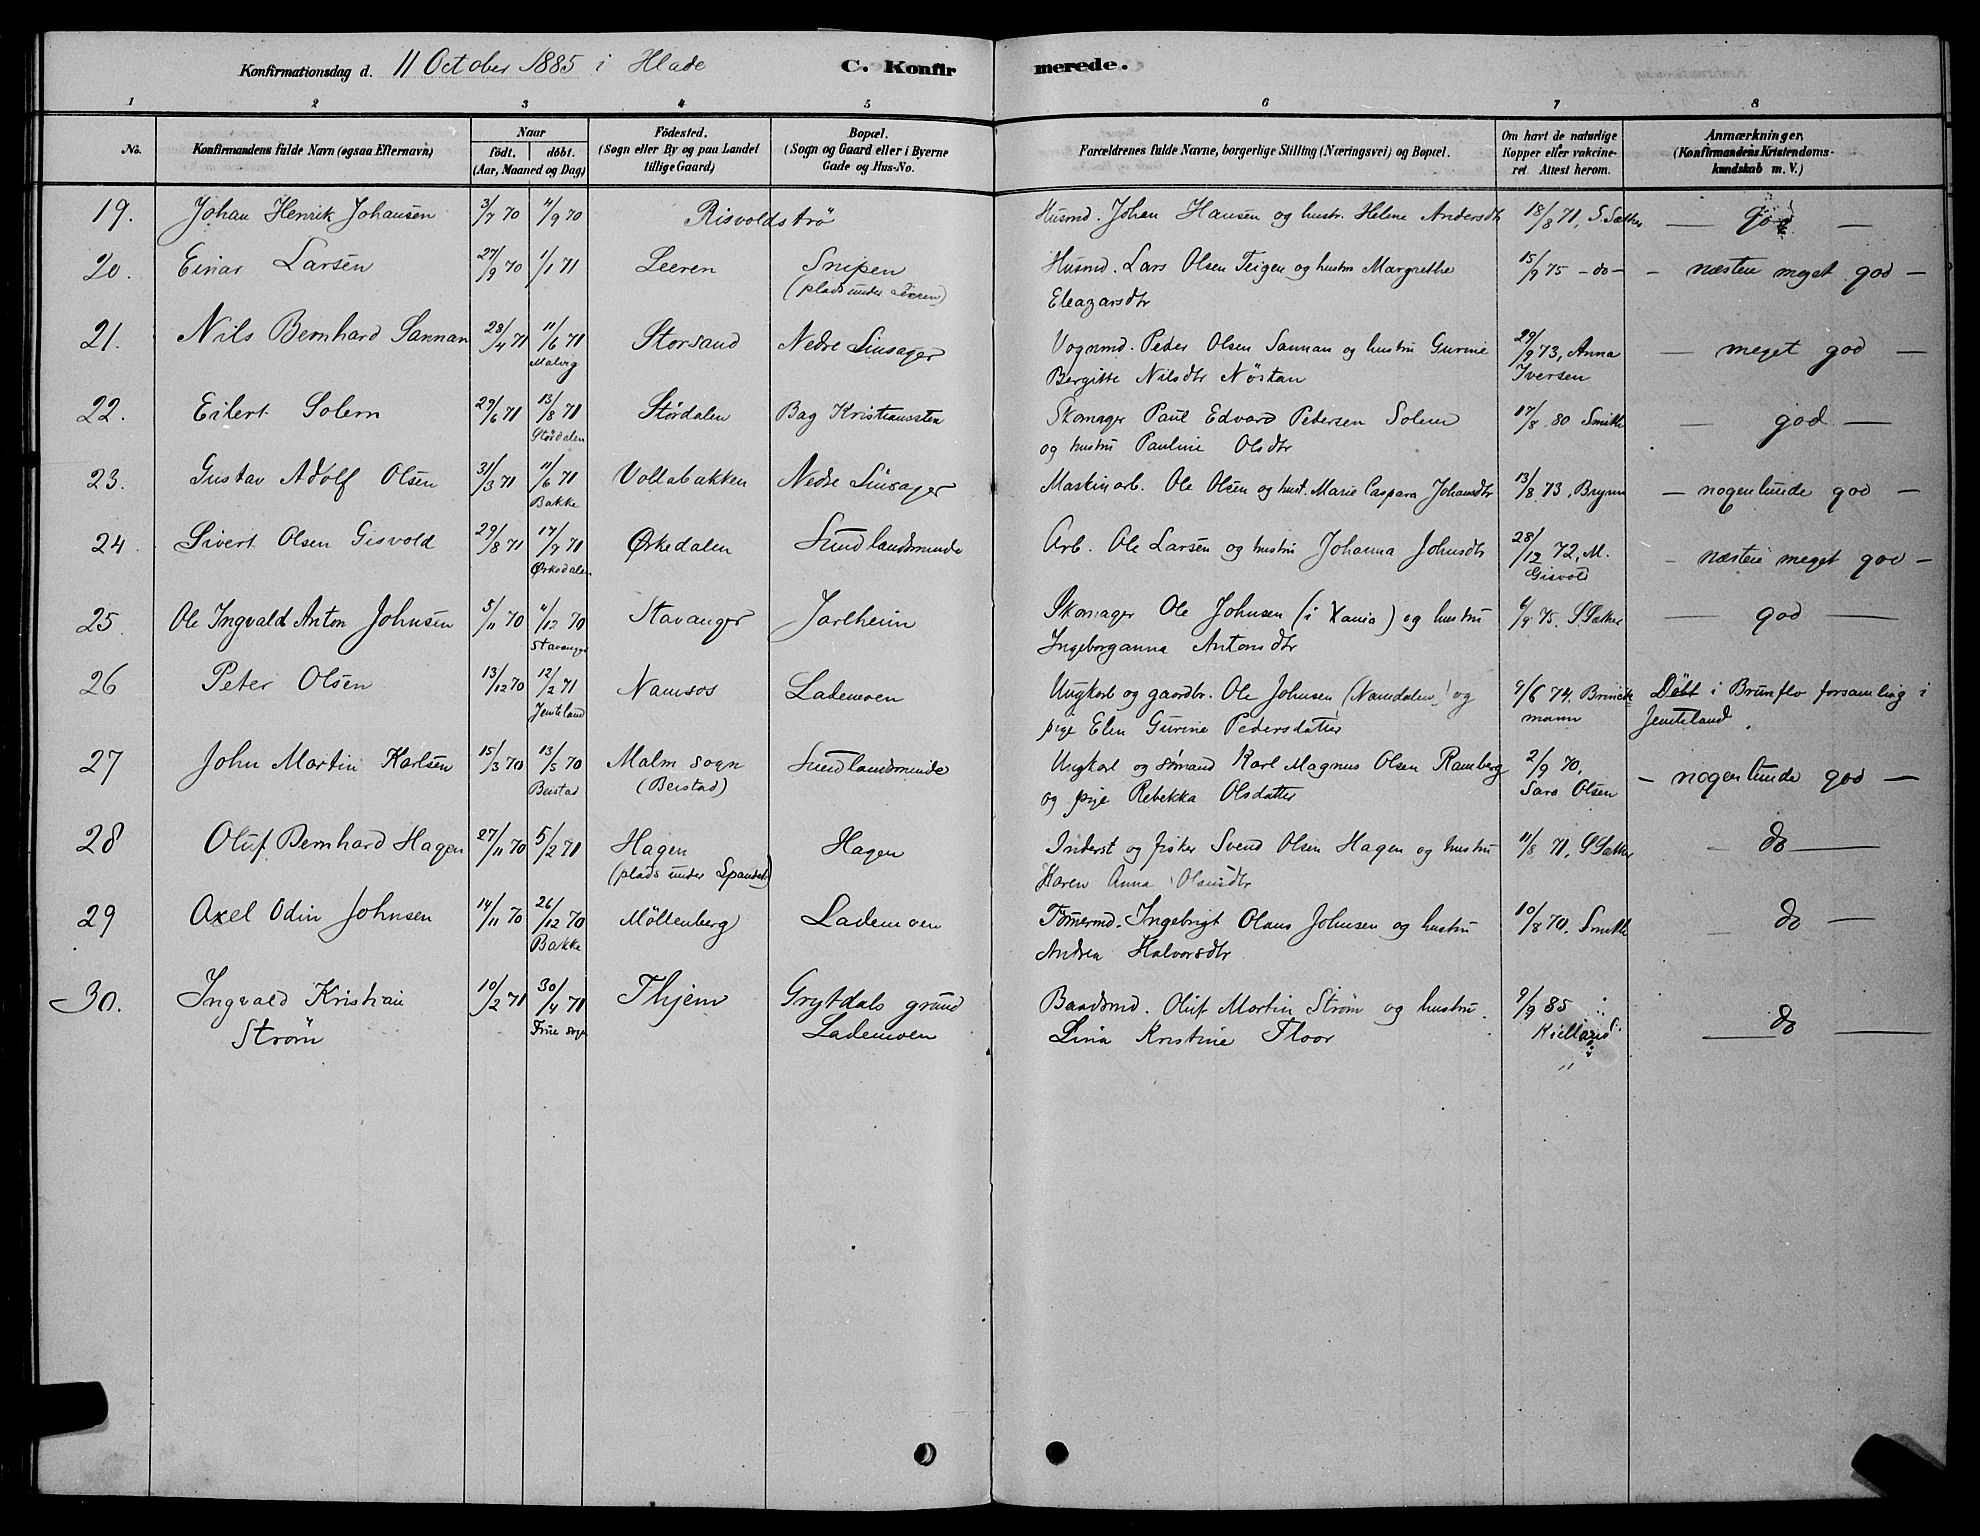 Konfirmationsdag d. 11 October 1885 i Hlade C. Konfirmerede.
1 2 3 4 5 6 7 8
No. Konfirmandens fulde Navn (ogsaa Efternavn) Naar født, døbt. (Aar, Maaned og Dag) Fødested. (Sogn eller By og paa Landet tillige Gaard) Bopæl. (Sogn og Gaard eller i Byerne Gade og Hus-No. Forældrenes fulde Navne, borgerlige Stilling (Næringsvei) og Bopæl. Om havt de naturlige Kopper eller vakcineret. Attest herom. Anmærkninger. (Konfirmandens Kristendomskundskab m. V.)
19. Johan Henrik Johansen 3/7 70 4/9 70 Risvoldströ Husmd. Johan Hansen og hustr. Helene Andersdtr 18/8 71, S. Sæther — god —
20. Einar Larsen 27/9 70 1/1 71 Leeren Snipen (plads under Leeren) Husmd. Lars Olsen Teigen og hustru Margrethe 15/9 75 - do - - næsten meget god -
Eleazarsdtr
21. Nils Bernhard Sannan 28/4 71 11/6 71 Malvig Storsand Nedre Linsager Vognmd. Peder Olsen Sannan og hustru Gurine 29/9 73, Anna Iversen — meget god —
Bergitte Nilsdtr Nöstan
22. Eilert Solem 29/6 71 13/8 71 Stördalen Stördalen Bag Kristianssten Skomager Paul Edvard Pedersen Solem 17/8 80 Smith — god —
og hustru Pauline Olsdtr
23. Gustav Adolf Olsen 31/3 71 11/6 71 Bakke Voldabakken Nedre Linsager Maskinarb. Ole Olsen og hust. Marie Caspara Johansdtr 13/8 73, Brynn — nogenlunde god —
24. Sivert Olsen Gisvold 29/8 71 17/9 71 Ørkedalen Ørkedalen Sundlandsminde Arb. Ole Larsen og hustru Johanna Johnsdtr 28/12 72, M. Gisvold - næsten meget god -
25. Ole Ingvald Anton Johnsen 5/11 70 4/12 70 Stavanger Stavanger Jarlheim Skomager Ole Johnsen (i Xania) og hustru 6/9 75. S. Sæther — god —
Ingeborganna Antonsdtr
26 Peter Olsen 13/12 70 12/2 71 Jemteland Namsos Lademoen Ungkarl og gaardbr. Ole Johnsen (Namdalen) og 9/6 74. Brinckmann Döbt i Brunflo forsamling i Jemteland.
pige Elen Gurine Pedersdatter
27 John Martin Karlsen 15/3 70 13/5 70 Beistad Malm sogn (Beistad) Sundlandsminde Ungkarl og sömand Karl Magnus Olsen Ramberg 2/9 70, Sara Olsen - nogenlunde god —
og pige Rebekka Olsdatter
28 Oluf Bernhard Hagen 27/11 70 5/2 71 Hagen (plads under Hagen Inderst og fisker Svend Olsen Hagen og hustru 11/8 71, S Sæther — do —
Karen Anna Olausdtr
29 Axel Odin Johnsen 14/11 70 26/12 70 Bakke Möllenberg Lademoen Tömermd. Ingebrigt Olaus Johnsen og hustru 10/8 70. Smith — do —
Andrea Halvorsdtr.
30. Ingvald Kristian Ström 10/2 71 30/4 71 Frue sogn Thjem Grytdals grund Lademoen Baadsmd. Oluf Martin Ström og hustru 9/9 85 Kielland — do —
Lina Kristine Floor